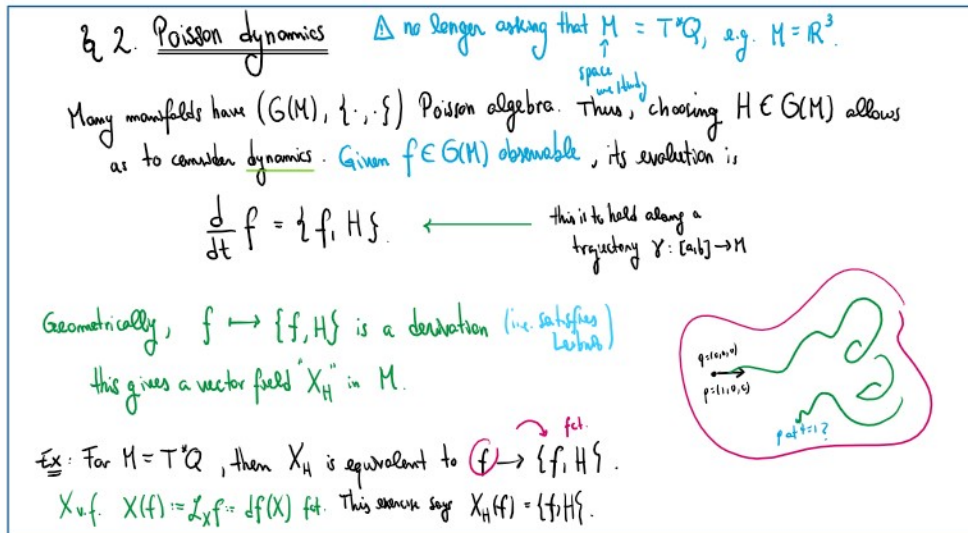 § 2. Poisson dynamics ⚠ no longer asking that M = T*Q, e.g. M = ℝ³.
↑
space
we study
Many manifolds have (G(M), {·,·}) Poisson algebra. Thus, choosing H ∈ G(M) allows
as to consider dynamics. Given f ∈ G(M) observable, its evolution is
d/dt f = {f, H}. ← this is to hold along a
trajectory γ: [a,b] → M
Geometrically, f ↦ {f, H} is a derivation (i.e. satisfies
Leibniz)
this gives a vector field "X_H" in M.
q=(0,0,0)
p=(1,0,0)
p at t=1?
fct.
Ex: For M = T*Q, then X_H is equivalent to f → {f, H}.
X v.f. X(f) := ℒ_X f := df(X) fct. This exercise says X_H(f) = {f,H}.